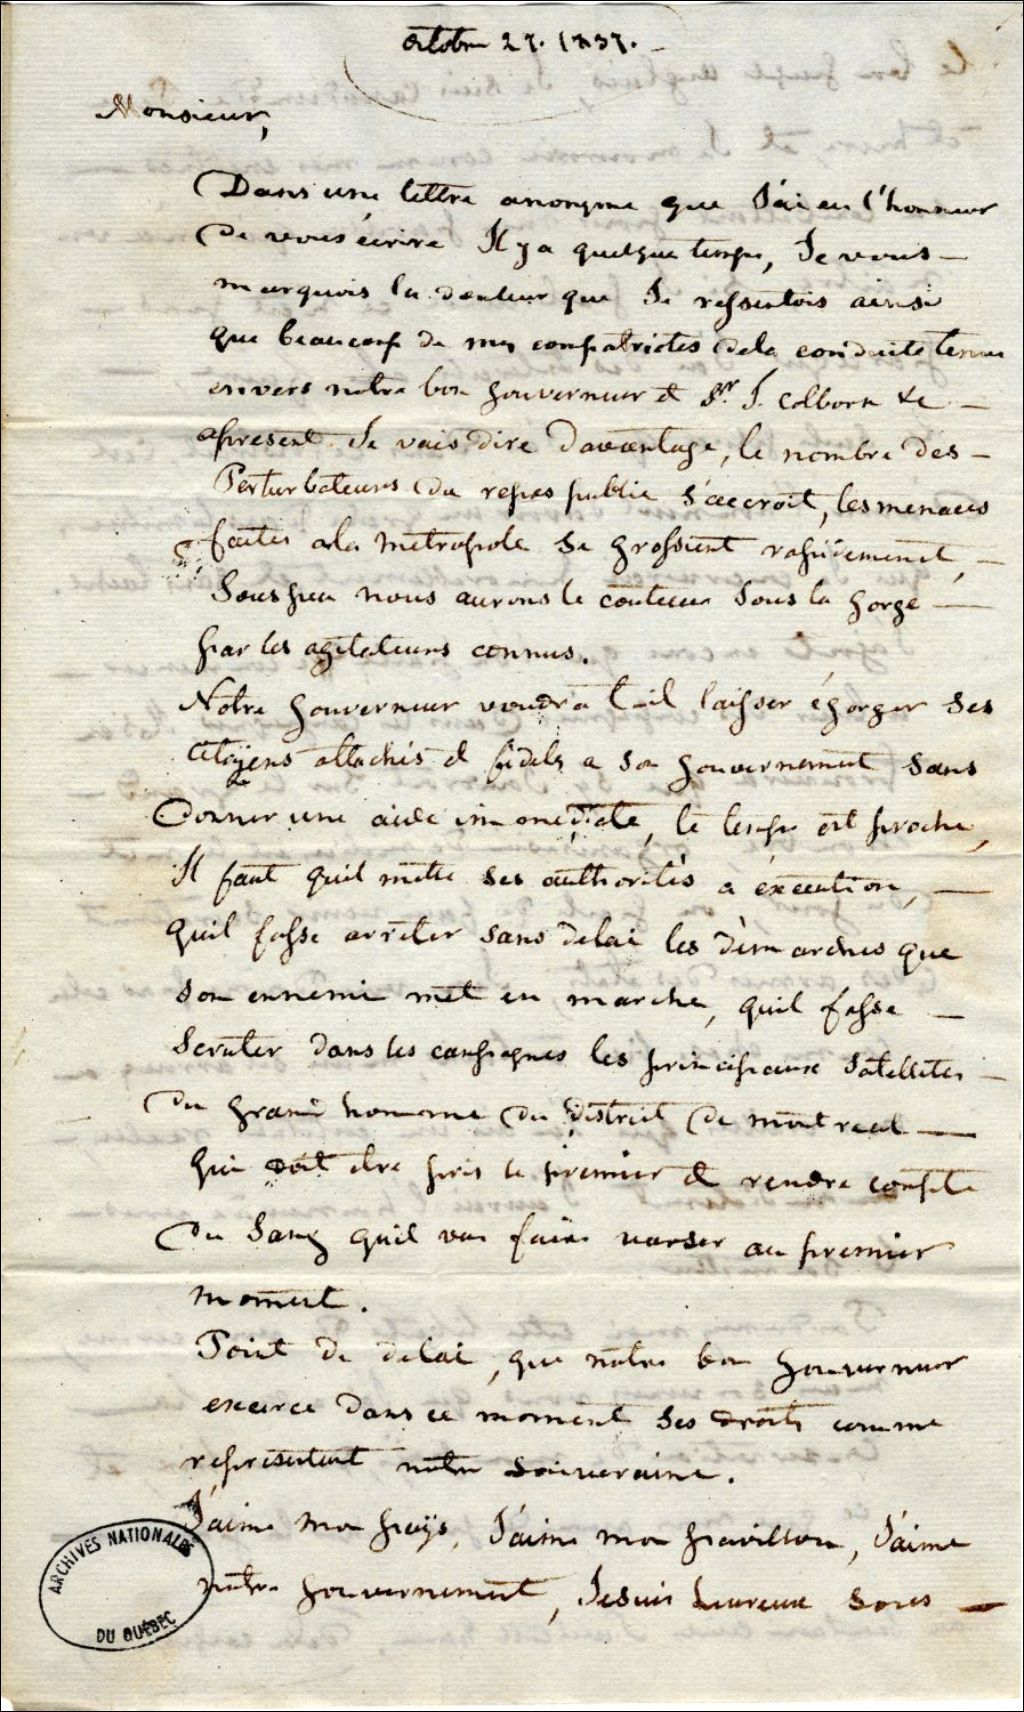 octobre 27. 1837.
Monsieur,
Dans une lettre anonyme que J'ai eu l'honneur
De vous écrire Il y a quelque temps, Je vous
marquois la douleur que Je ressentois ainsi
que beaucoup de mes compatriotes dela conduite tenue
envers notre bon gouverneur et Sr. J. Colborn &c
apresent Je vais dire Davantage, le nombre des
Perturbateurs du repos public s'accroit, les menaces
faites ala métropole se grossient rapidement,
Sous peu nous aurons le couteau sous la gorge
par les agitateurs connus.
Notre gouverneur voudra t-il laisser égorger ses
citoyens attachés et fideles a son gouvernement sans
Donner une aide immediate, le temps est proche,
Il faut quil mette ses authorités a éxécution,
quil fasse arrêter sans delai les démarches que
son ennemi met en marche, quil fasse
Scruter dans les campagnes les principaux Satellites
du grand homme du district de montreal
qui doit être pris le premier et rendre compte
Du Sang quil va faire verser au premier
moment.
Point de delai, que nôtre bon gouverneur
exerce dans ce moment ses droits comme
representant nôtre souveraine.
J'aime mon païs, J'aime mon pavillon, J'aime
nôtre gouvernement, Je suis heureux sous
ARCHIVES NATIONALES
DU QUÉBEC